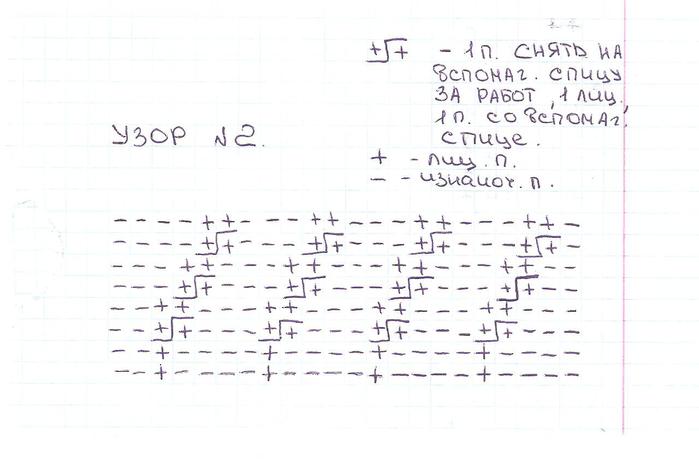 +┌+ - 1 п. СНЯТЬ НА
ВСПОМАГ. СПИЦУ
ЗА РАБОТ, 1 ЛИЦ.,
1 п. СО ВСПОМАГ.
СПИЦЕ.
УЗОР N2.
+ - ЛИЦ. П.
- - ИЗНАНОЧ. П.
- - - - + + - - - + + - - - + + - - - + + -
- - - - +┌+ - - - +┌+ - - - +┌+ - - - +┌+ -
- - - + + - - - + + - - - + + - - - + + - -
- - - +┌+ - - - +┌+ - - - +┌+ - - - +┌+ - -
- - + + - - - + + - - - + + - - - + + - - -
- - +┌+ - - - +┌+ - - - +┌+ - - - +┌+ - - -
- - + - - - - + - - - - + - - - - + - - - -
- - + - - - - + - - - - + - - - - + - - - -